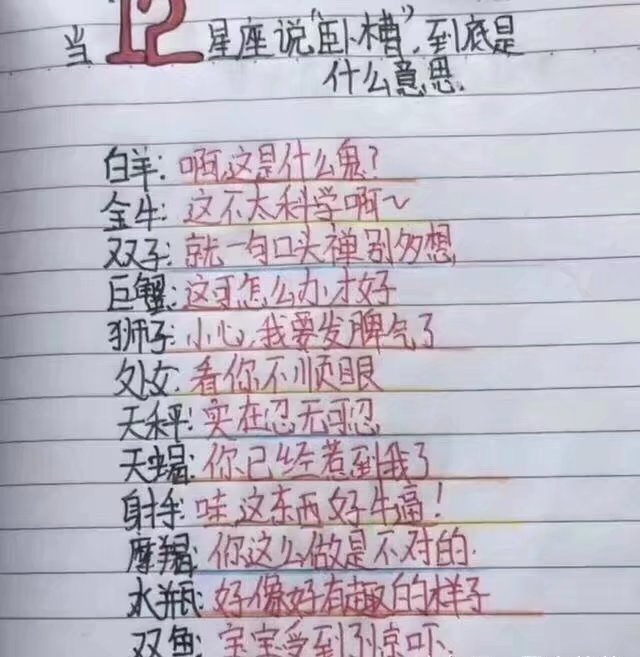 当12星座说“卧槽”，到底是
什么意思.
白羊：啊，这是什么鬼？
金牛：这不太科学啊～
双子：就一句口头禅别多想
巨蟹：这可怎么办才好
狮子：小心，我要发脾气了
处女：看你不顺眼
天秤：实在忍无可忍
天蝎：你已经惹到我了
射手：哇，这东西好牛逼！
摩羯：你这么做是不对的.
水瓶：好像好有趣的样子
双鱼：宝宝受到了惊吓.